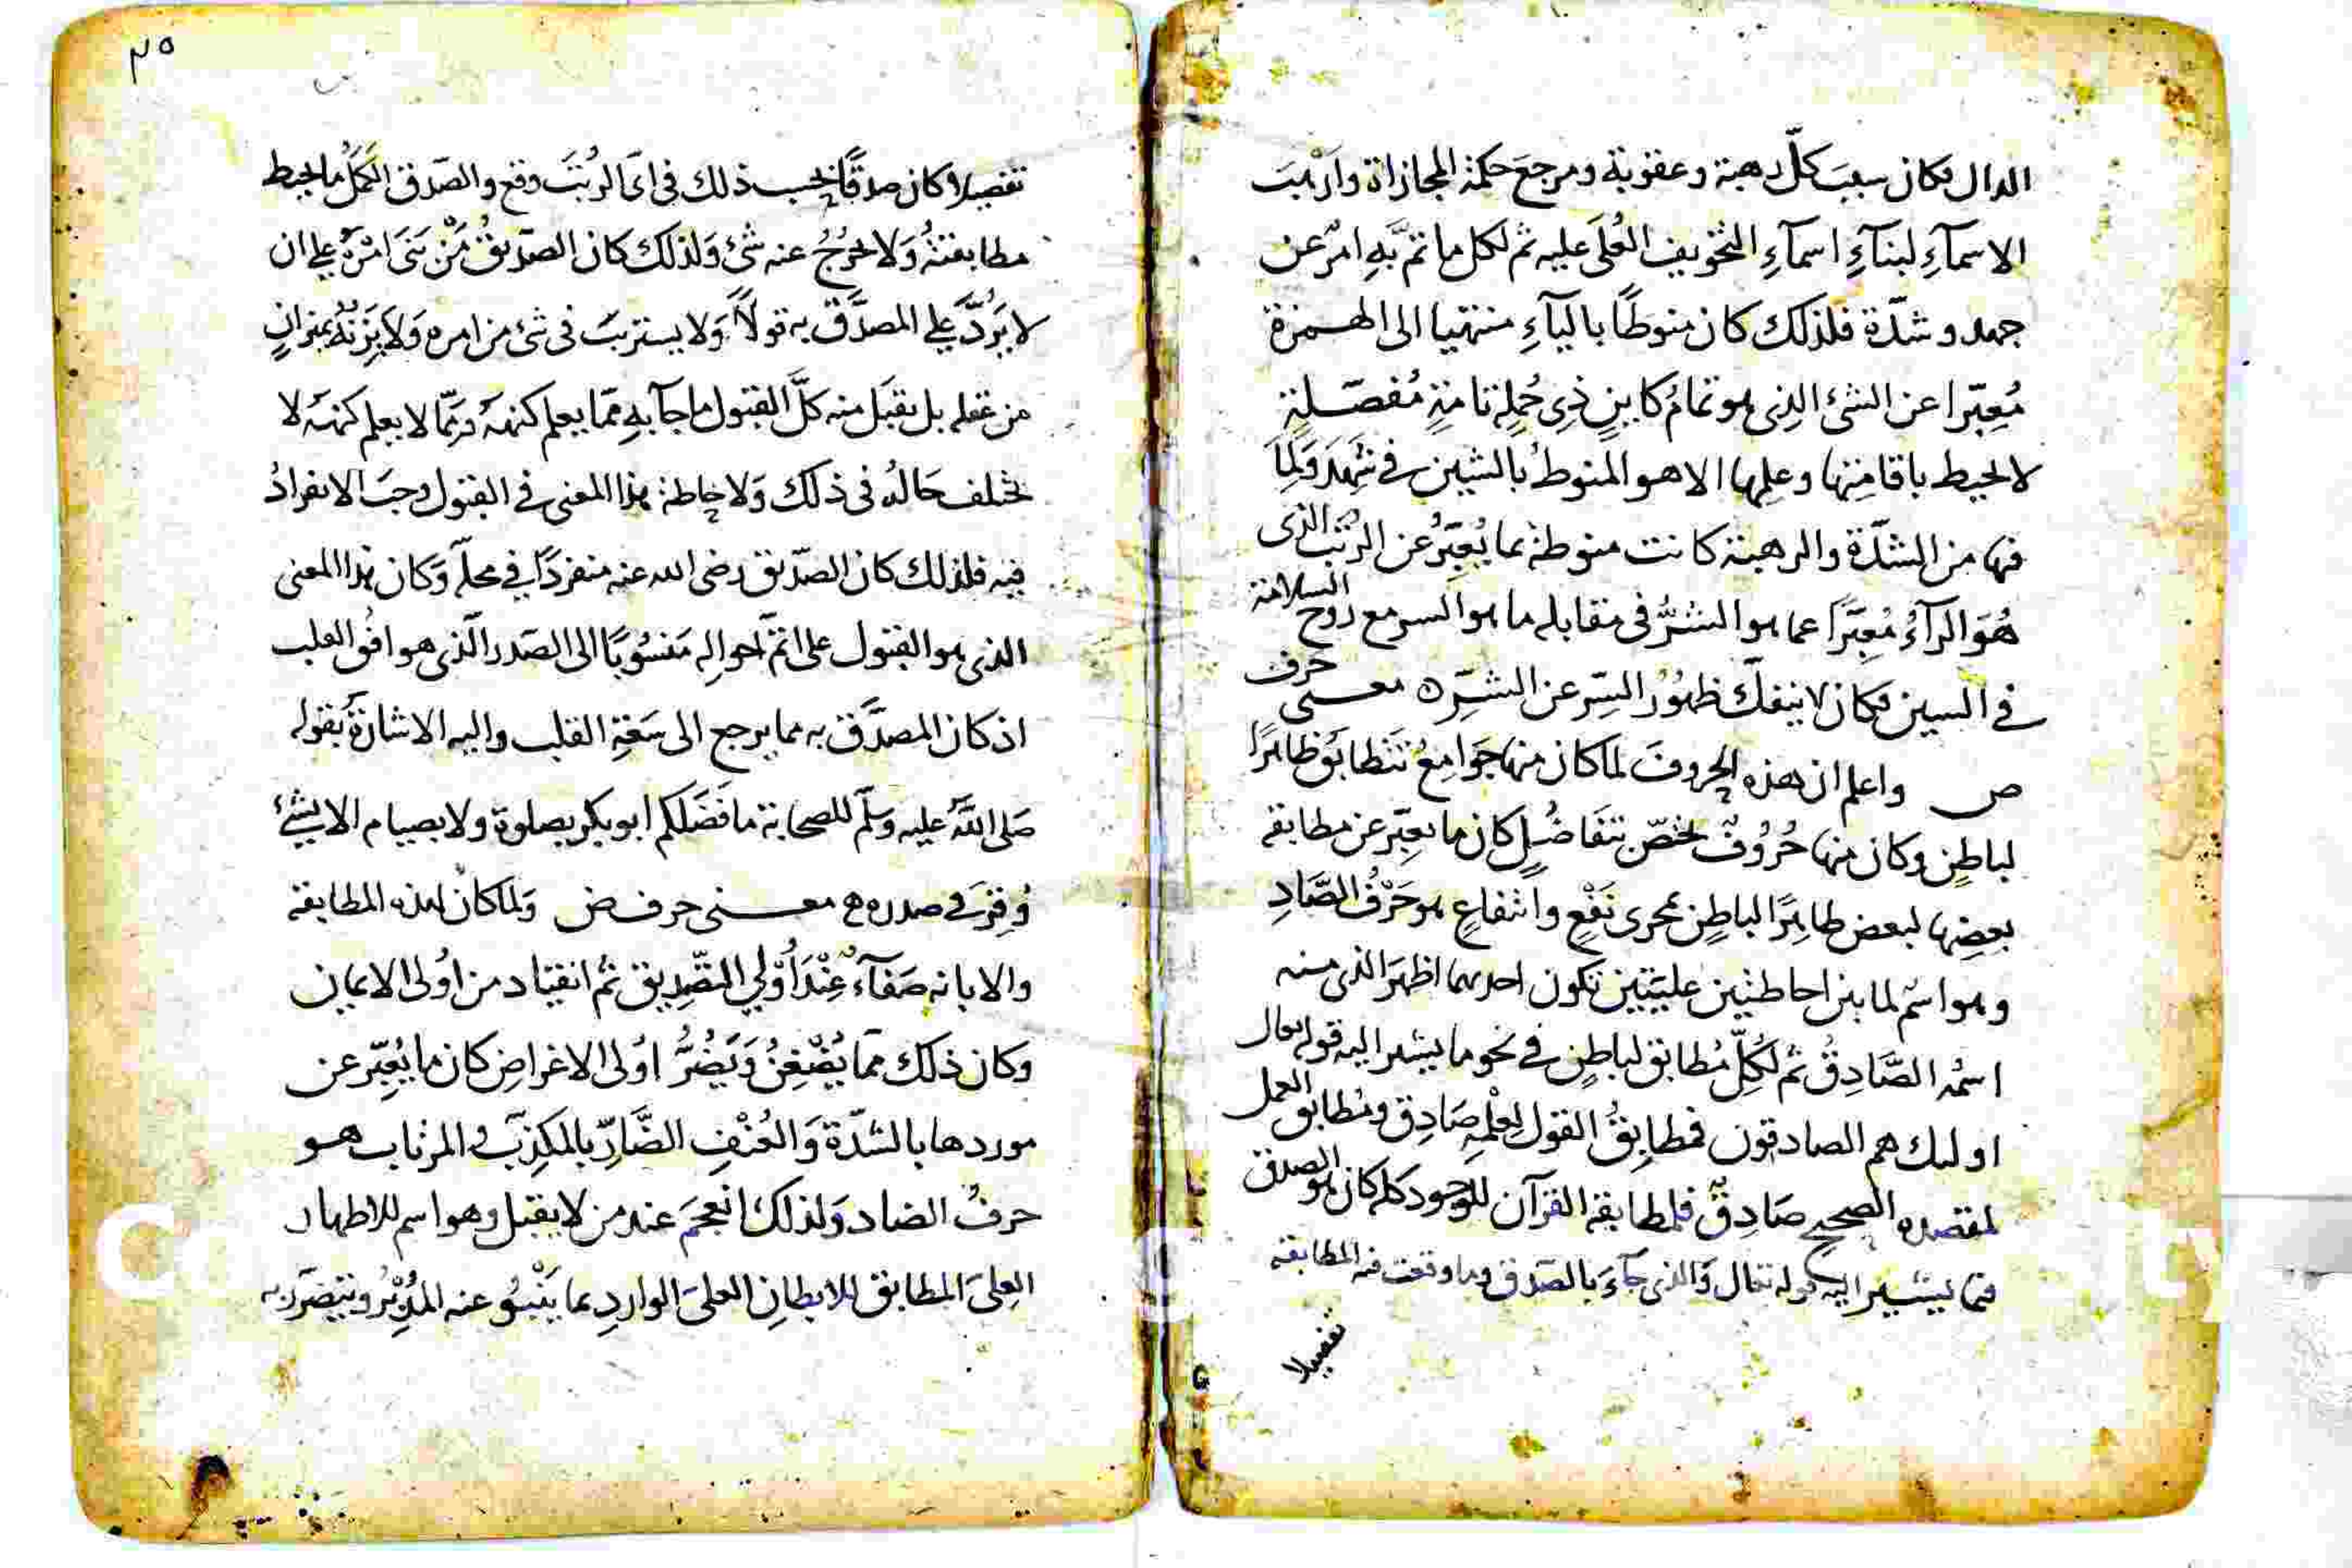 الدال فكان سبب كلّ رهبة وعقوبة ومرجع حكمة المجازاة وارهب
الاسمآءِ لبنآءِ اسمآءِ التخويف العُلَى عليه ثم لكل ما تم به امرٌ عن
جهد وشدّة فلذلك كان منوطًا باليآءِ منتهيا الى الهمزة
مُعبّرا عن الشئ الذى هو تمامُ كاينٍ ذِى جُملة تامةٍ مُفصّلةٍ
لا يحيط باقامتها وعلمها الا هو المنوط بالشين فى شهد ولما
فيها من الشدّة والرهبة كانت منوطة بما يُعبِّرُ عن الرتب الذى
هُوَ الرآءُ مُعبّرًا عما هو الشرُّ فى مقابله ما هو السر مع روح السلامة
فى السين فكان لا ينفكّ ظهورُ السِّر عن الشرّ ه معنى حرف
ص واعلم ان هذه الحروف لما كان منها جوامعُ تتطابق ظاهرًا
لباطنٍ وكان منها حُرُوفٌ تختصّ بتفاضُلٍ كان ما يعبّر عن مطابقة
بعضِها لبعض ظاهرًا لباطن مجرى نَفْعٍ وانتفاعٍ هو حَرْفُ الصَّادِ
وهو اسم لما بين احاطتين عليّتين تكون احديهما اظهرَ الذى منه
اسمُه الصَّادِقُ ثم لكُلِّ مُطابق لباطنٍ فى نحو ما يشير اليه قوله تعال
اولىك هم الصادقون فمطابِقُ القول لِعلْمِه صَادِق ومُطابق العمل
لمقصده الصحيح صَادِقٌ فلمطابقة القرآن للوجود كله كان هو الصدق
فيما يشير اليه قوله تعال وَالذى جآءَ بالصدق وما وقعت فيه المطابقة
تفصيلا
٢٥
تفصيلا كان صدقًا بحسب ذلك فى اىّ الرُتَب وقع والصّدق اكملُ ما يحيط
مطابقتهُ وَلا يخرُجُ عنه شئ وَلذلك كان الصّدّيقُ مَنْ بَنَى امْرَهُ على ان
لا يَرُدَّ على المصدَّق به قولًا وَلا يستريبَ فى شئ من امره وَلا يَزِنهُ بميزانٍ
من عقله بل يقبَل منه كلَّ القبول ما جآ بهِ ممّا يعلم كنهَهُ وممّا لا يعلم كنهَه لا
يختلف حَالهُ فى ذلك وَلاحاطة هذا المعنى فى القبول وجبَ الانفرادُ
فيه فلذلك كان الصّدّيق رضى الله عنه منفردًا فى محلّه وَكان هذا المعنى
الذى هو القبول على اتمّ احوالِه مَنسُوبًا الى الصّدر الّذى هو افق القلب
اذ كان المصدَّق به مما يرجع الى سَعَةِ القلب واليه الاشارة بقوله
صَلى اللهُ عليه وَسَلّم للصحابة ما فَضَلكم ابو بكر بصلوة ولا بصيام الا بشئ
وُقِرَ فى صدره ه معنى حرف ض وَلما كان لهذه المطابقة
والابانة صَفآءٌ عِنْدَ أُوْلِي التصديق ثم انقياد من اُولى الايمان
وكان ذلك ممّا يُضْغِنُ وَيَضُرُّ اوُلى الاغراضِ كان ما يُعبّر عن
موردها بالشدّة وَالعُنْفِ الضَّارّ بالمكذِبِ والمرتاب هو
حرفُ الضاد وَلذلك انعجمَ عند من لا يقبل وهو اسم للاظهار
العلىّ المطابق للابطانِ العلىّ الواردِ بما يَنْبُو عنه المُدْبرُ ويتضرّر به